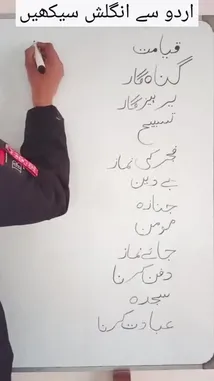 اردو سے انگلش سیکھیں
قیامت
گناہ گار
پرہیزگار
تسبیح
فجر کی نماز
بے دین
جنازہ
مومن
جائے نماز
دفن کرنا
سجدہ
عبادت کرنا